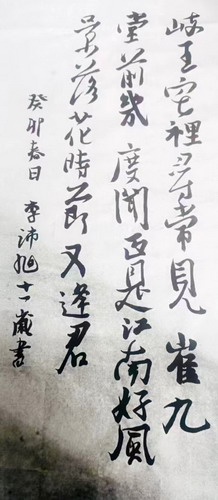 岐王宅裡尋常見崔九
堂前幾度聞正是江南好風
景落花時節又逢君
癸卯春日 李沛旭十一歲書